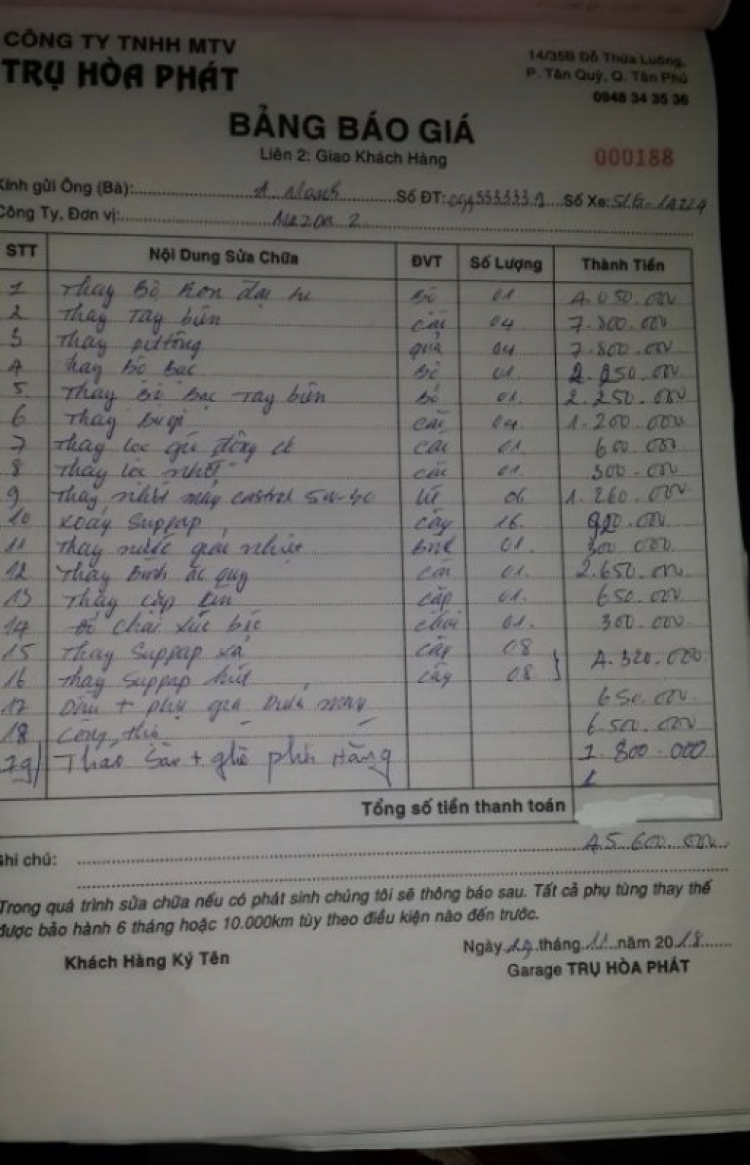 CÔNG TY TNHH MTV
TRỤ HÒA PHÁT
14/35B Đỗ Thừa Luông,
P. Tân Quý, Q. Tân Phú
0948 34 35 36
BẢNG BÁO GIÁ
Liên 2: Giao Khách Hàng
000188
Kính gửi Ông (Bà): A Số ĐT: Số Xe:
Công Ty, Đơn vị:
STT Nội Dung Sửa Chữa ĐVT Số Lượng Thành Tiền
1 Thay Bộ Ron đại Bộ 01 4.050.000
2 Thay Tay biên cái 04 7.800.000
3 Thay pittông quả 04 7.800.000
4 Thay Bộ Bạc Bộ 01 2.250.000
5 Thay Bộ Bạc Tay biên Bộ 01 2.250.000
6 Thay Bugi cái 04 1.200.000
7 Thay lọc gió động cơ cái 01 600.000
8 Thay lọc nhớt cái 01 300.000
9 Thay nhớt máy castrol lít 06 1.260.000
10 xoáy Suppap cây 16 920.000
11 Thay nước giải nhiệt 01 300.000
12 Thay Bình ắc quy cái 01 2.650.000
13 Thay cặp 01 650.000
14 chai súc chai 01 300.000
15 Thay Suppap xả cây 08
16 Thay Suppap hút cây 08 4.320.000
17 + phụ gia máy 650.000
18 Công thợ 6.500.000
19 Tháo Sàn + ghế phơi Hàng 1.800.000
Tổng số tiền thanh toán
45.600.000
Ghi chú:
Trong quá trình sửa chữa nếu có phát sinh chúng tôi sẽ thông báo sau. Tất cả phụ tùng thay thế
được bảo hành 6 tháng hoặc 10.000km tùy theo điều kiện nào đến trước.
Ngày 19 tháng 11 năm 2018
Khách Hàng Ký Tên
Garage TRỤ HÒA PHÁT